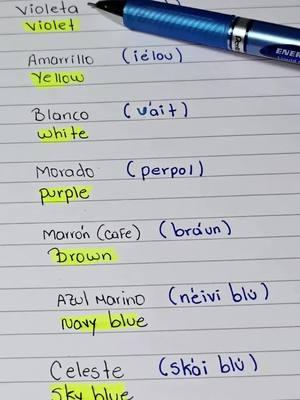 Violeta
violet
Amarrillo (iélou)
Yellow
Blanco (váit)
white
Morado (perpol)
purple
Marrón (cafe) (bráun)
Brown
Azul Marino (néivi blú)
Navy blue
Celeste (skái blú)
Sky blue
Pentel
ENER